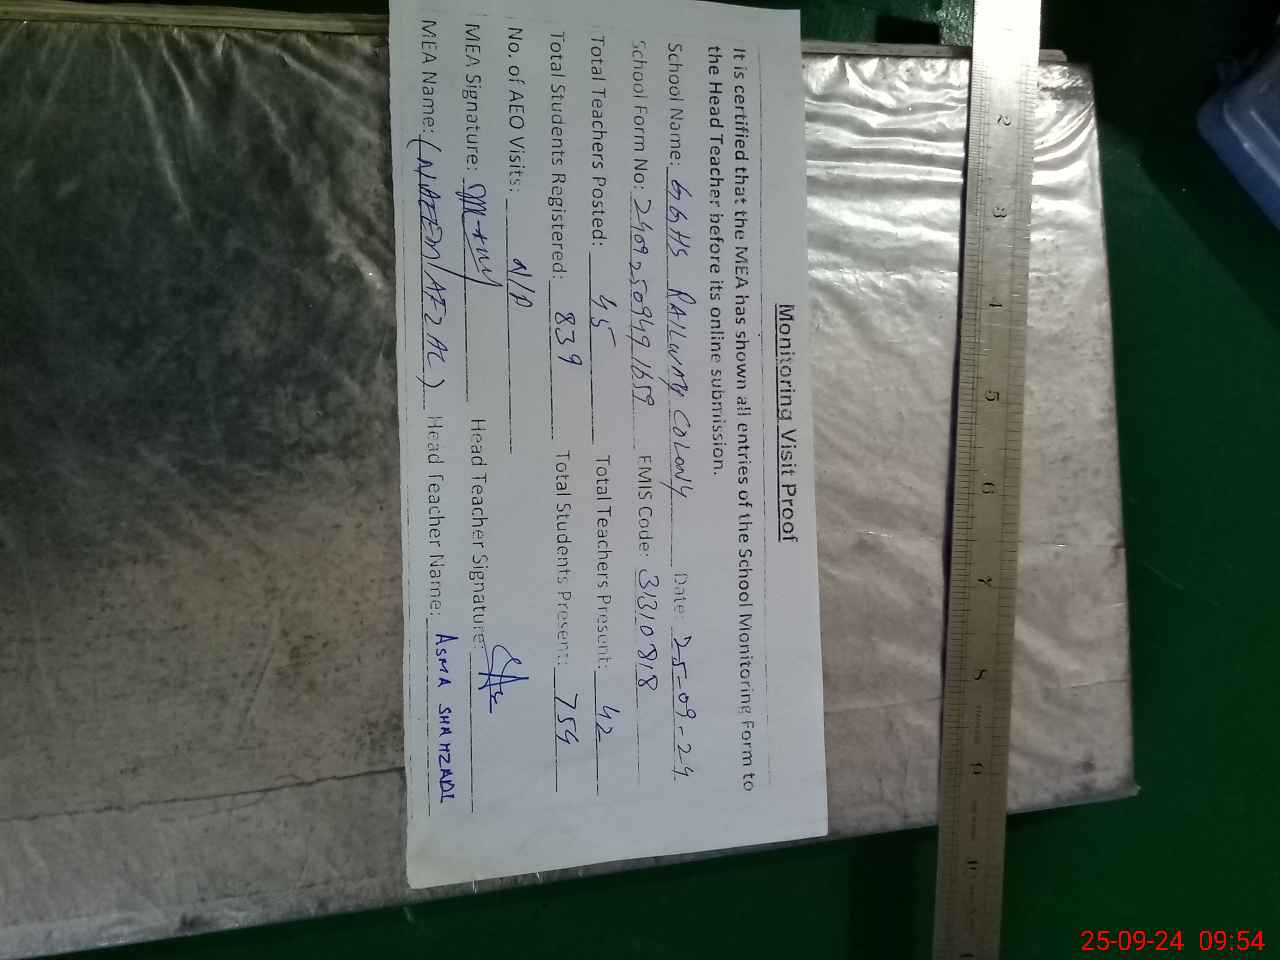 Monitoring Visit Proof
It is certified that the MEA has shown all entries of the School Monitoring Form to
the Head Teacher before its online submission.
School Name: GGHS RAILWAY COLONY Date: 25-09-24.
School Form No: 24092509491659 EMIS Code: 31310818
Total Teachers Posted: 45 Total Teachers Present: 42
Total Students Registered: 839 Total Students Present: 754
No. of AEO Visits: N/A
MEA Signature: Head Teacher Signature:
MEA Name: (NAEEM AFZAL) Head Teacher Name: ASMA SHAHZADI
2 3 4 5 6 7 8 9 10
25-09-24 09:54